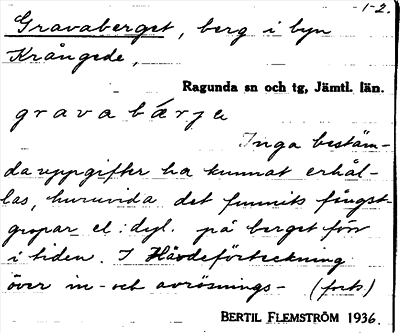 1-2.
Gravaberget, berg i byn
Krångede,
Ragunda sn och tg, Jämtl. län.
gravabärje
Inga bestäm-
da uppgifter ha kunnat erhål-
las, huruvida det funnits fångst-
gropar el. dyl. på berget förr
i tiden. I Hävdeförteckning
över in- och avrösnings- (forts.)
BERTIL FLEMSTRÖM 1936.